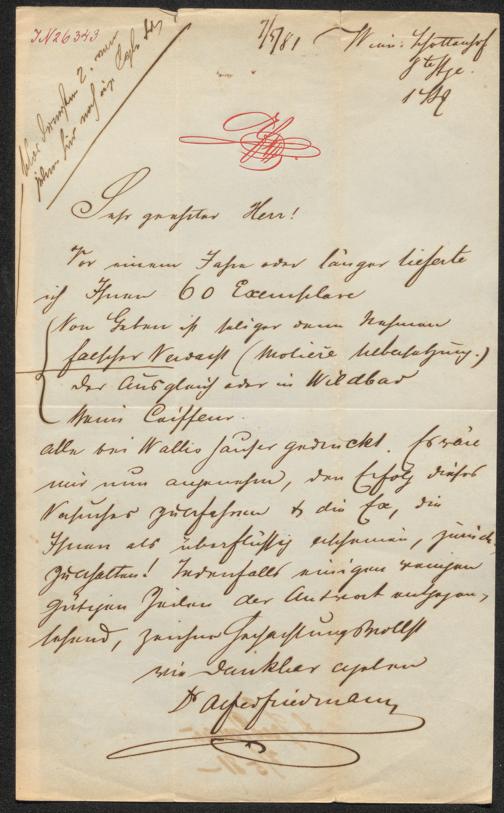 IN26343
7/5/81
Wien: Schottenhof
1 Stg
Sehr geehrter Herr!
Vor einem Jahre oder länger lieferte
ich Ihnen 60 Exemplare
Von Geben ist seliger denn Nehmen
falscher Verdacht (Molière Uebersetzung.)
der Ausgleich oder in Wildbad
Mein Coiffeur.
alle bei Wallishausser gedruckt. Es wäre
mir nun angenehm, den Erfolg dieses
Versuches zu erfahren & die Ex, die
Ihnen als überflüssig erscheinen, zurück
zu erhalten! Jedenfalls einigen wenigen
gütigen Zeilen der Antwort entgegen-
sehend, zeichne Hochachtungsvollst
wie dankbar ergeben
Dr Alfred Friedmann